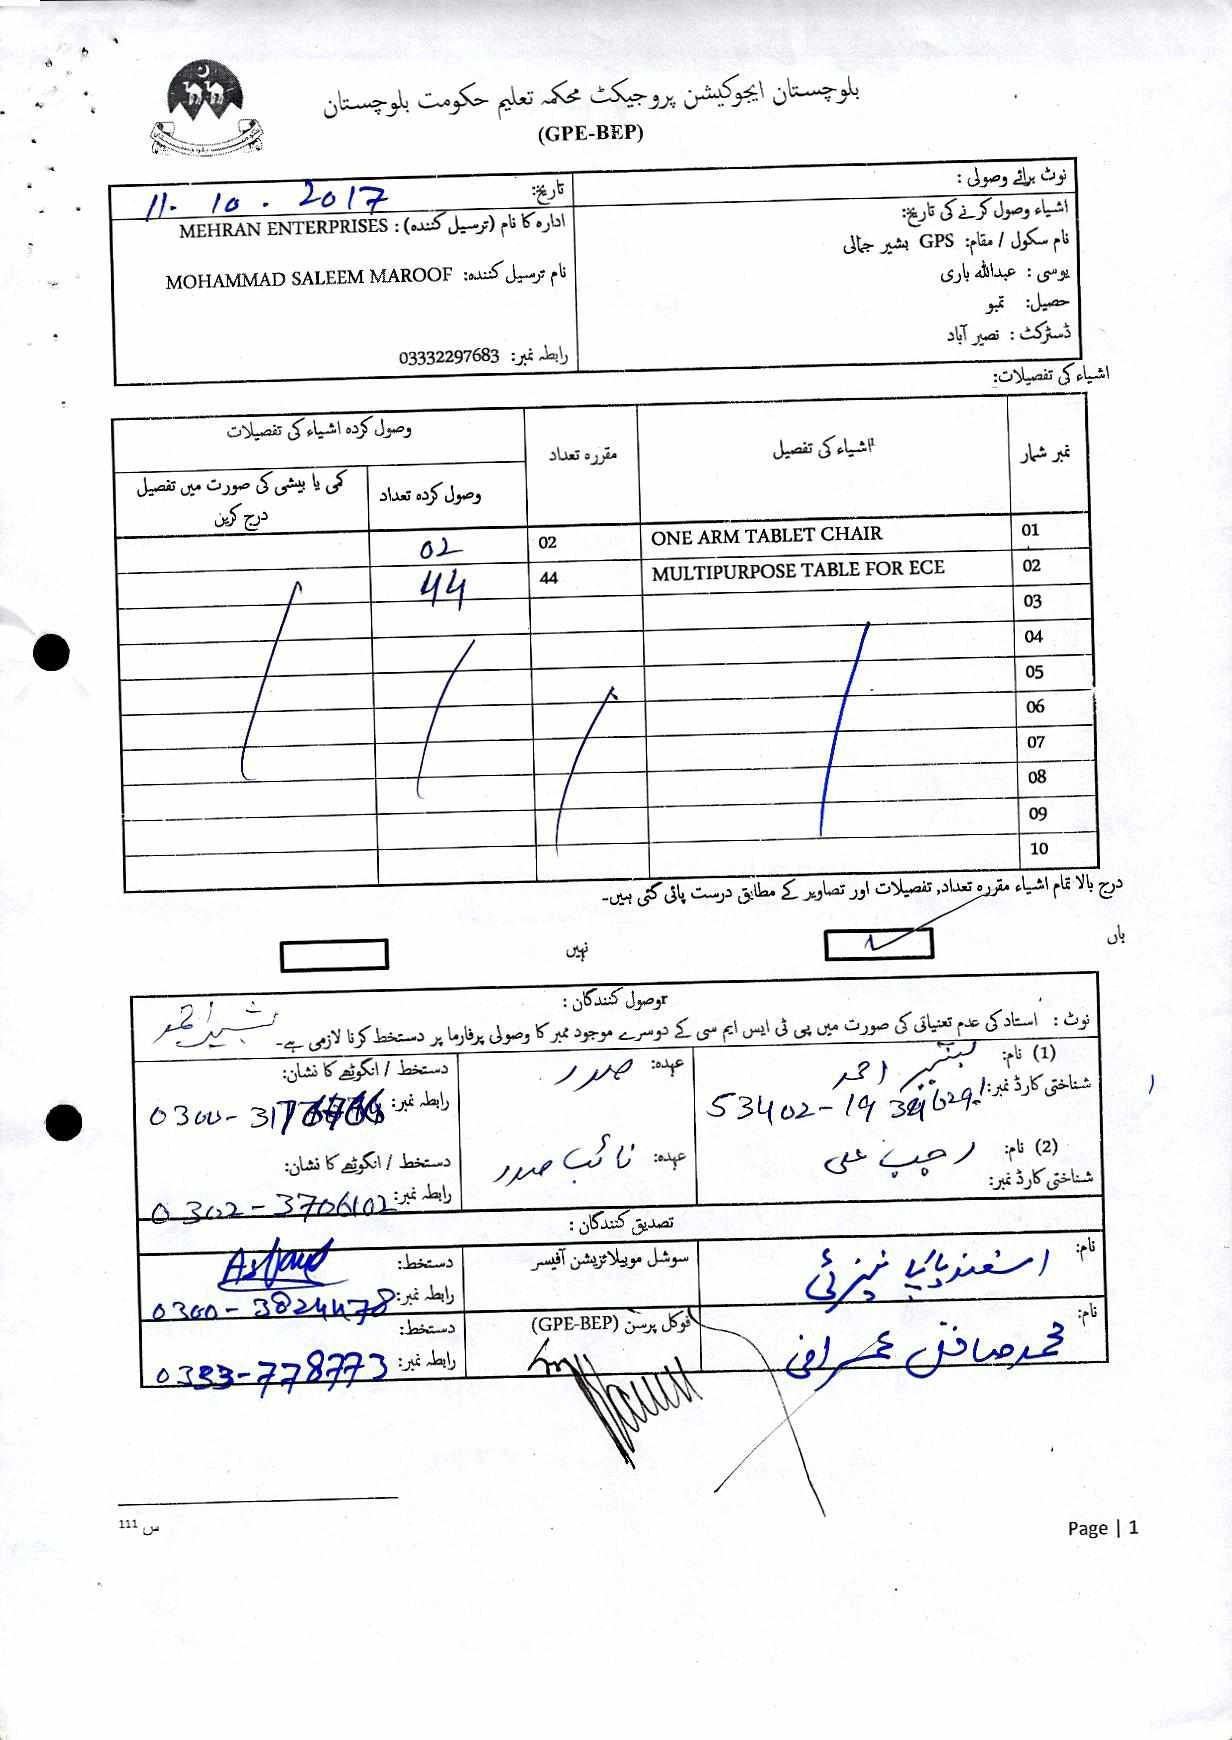 بلوچستان ایجوکیشن پروجیکٹ محکمہ تعلیم حکومت بلوچستان
(GPE-BEP)
نوٹ برائے وصولی :
اشیاء وصول کرنے کی تاریخ:
نام سکول / مقام: GPS بشیر جمالی
یوسی : عبداللہ باری
حصیل: تمبو
ڈسٹرکٹ : نصیر آباد
تاریخ: 11. 10 . 2017
ادارہ کا نام (ترسیل کنندہ) : MEHRAN ENTERPRISES
نام ترسیل کنندہ: MOHAMMAD SALEEM MAROOF
رابطہ نمبر: 03332297683
اشیاء کی تفصیلات:
نمبر شمار اشیاء کی تفصیل مقررہ تعداد وصول کردہ اشیاء کی تفصیلات
وصول کردہ تعداد کمی یا بیشی کی صورت میں تفصیل درج کریں
01 ONE ARM TABLET CHAIR 02 02
02 MULTIPURPOSE TABLE FOR ECE 44 44
03
04
05
06
07
08
09
10
درج بالا تمام اشیاء مقررہ تعداد, تفصیلات اور تصاویر کے مطابق درست پائی گئی ہیں۔
ہاں نہیں
وصول کنندگان :
نوٹ : استاد کی عدم تعنیاتی کی صورت میں پی ٹی ایس ایم سی کے دوسرے موجود ممبر کا وصولی پرفارما پر دستخط کرنا لازمی ہے۔
بشیر احمد
(1) نام: بشیر احمد عہدہ: صدر دستخط / انگوٹھے کا نشان:
شناختی کارڈ نمبر: 53402-19 رابطہ نمبر: 0300-31
(2) نام: رجب علی عہدہ: نائب صدر دستخط / انگوٹھے کا نشان:
شناختی کارڈ نمبر: رابطہ نمبر: 0302-3706102
تصدیق کنندگان :
نام: اسفندیار سوشل موبیلائزیشن آفیسر دستخط:
رابطہ نمبر: 0300-3824478
نام: محمد صادق عمرانی فوکل پرسن (GPE-BEP) دستخط:
رابطہ نمبر: 0333-778773
س 111
Page | 1